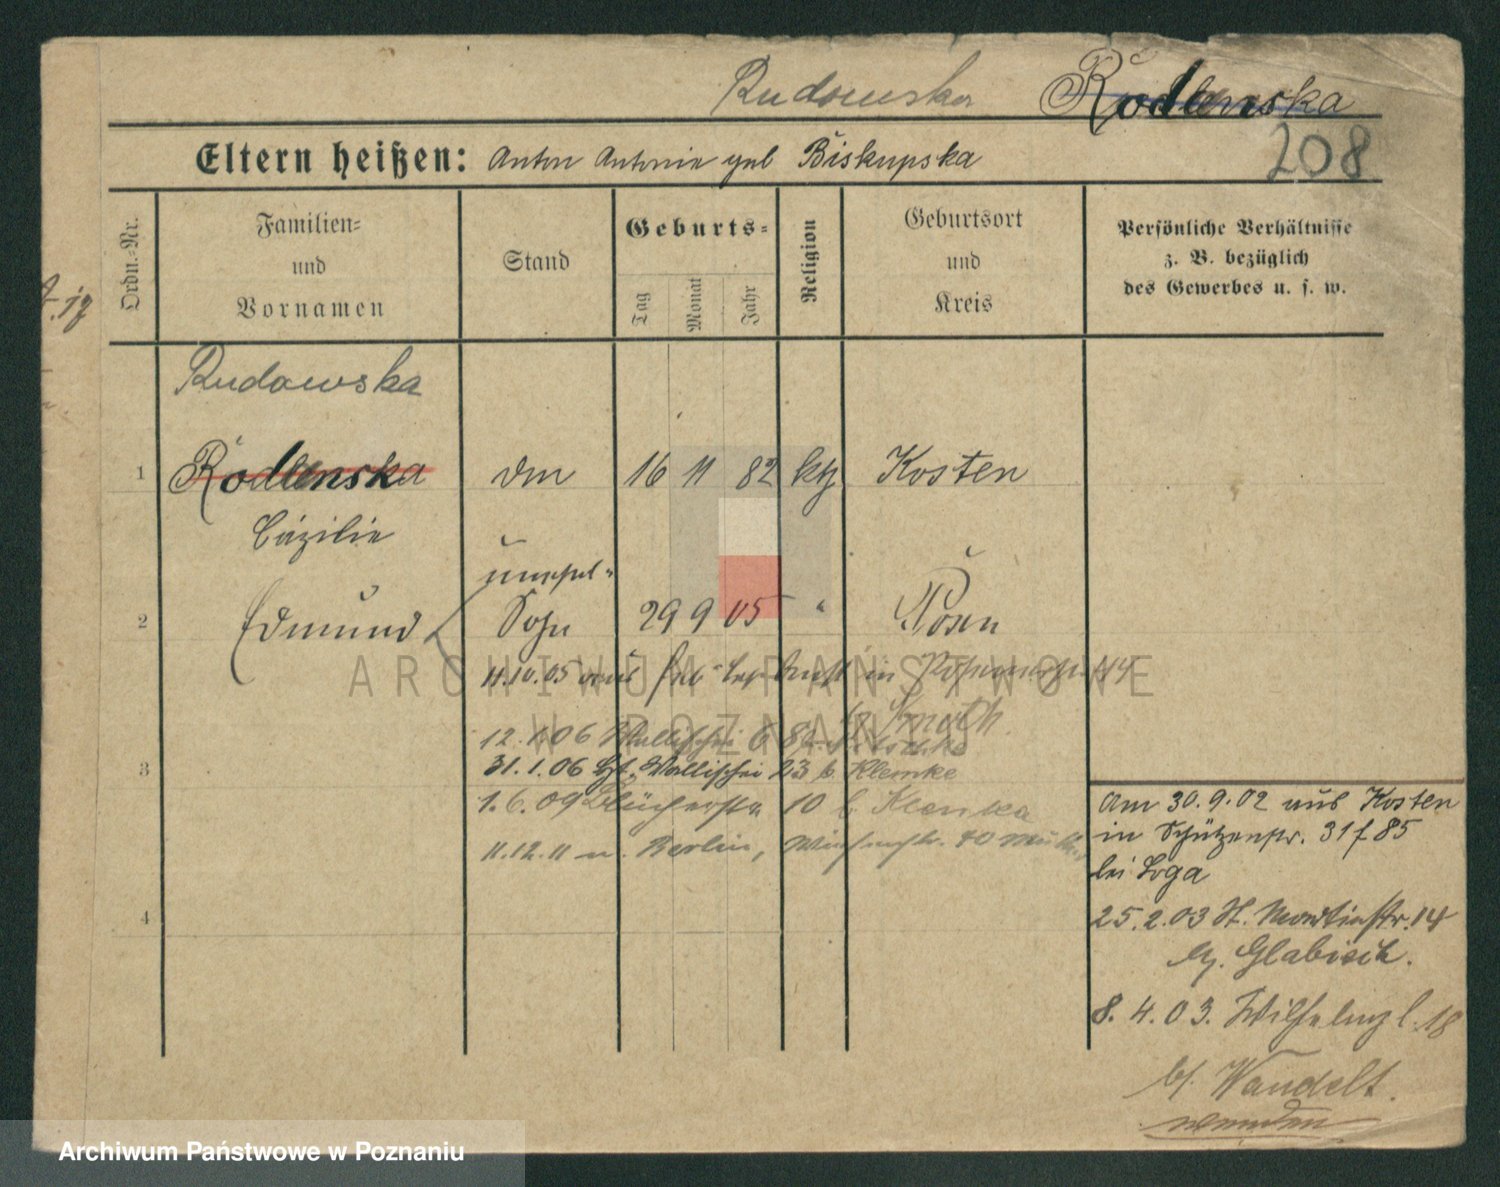 Rudowska Rodlenska
Eltern heißen: Anton Antonie geb Biskupska
208
Ordn.-Nr.
Familien-
und
Vornamen
Stand
Geburts-
Tag
Monat
Jahr
Religion
Geburtsort
und
Kreis
Persönliche Verhältnisse
z. B. bezüglich
des Gewerbes u. s. w.
Rudowska
1 Rodlenska 16 11 82 kth Kosten
Cäzilie
unehel-
2 Edmund Sohn 29 9 05 " Posen
11.10.05 aus in 44
12.1.06 Wallischei
3 31.1.06 Wallischei 23 b. Klemke
1.6.09 Blücherstr 10 b. Klemka
11.12.11 n. Berlin, 40
4
Am 30.9.02 aus Kosten
in Schützenstr. 31 f 85
bei Loga
25.2.03 St. Martinstr. 14
Glabisch.
8.4.03. Wilhelmpl. 18
b/. Wandelt.
wenden
ARCHIWUM PAŃSTWOWE
W POZNANIU
Archiwum Państwowe w Poznaniu